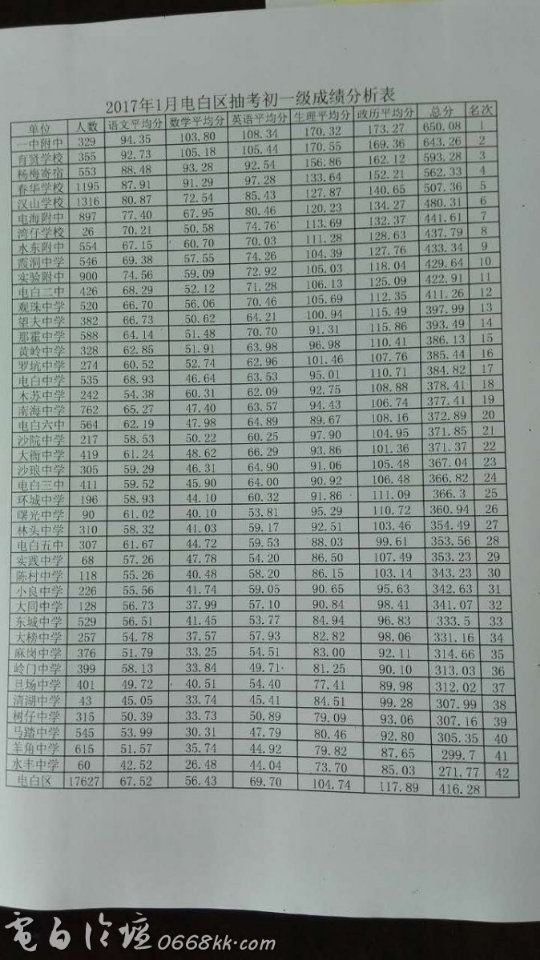 2017年1月电白区抽考初一级成绩分析表
单位 人数 语文平均分 数学平均分 英语平均分 生理平均分 政历平均分 总分 名次
一中附中 329 94.35 103.80 108.34 170.32 173.27 650.08 1
育贤学校 355 92.73 105.18 105.44 170.55 169.36 643.26 2
杨梅寄宿 553 88.48 93.28 92.54 156.86 162.12 593.28 3
春华学校 1195 87.91 91.29 97.28 133.64 152.21 562.33 4
汉山学校 1316 80.87 72.54 85.43 127.87 140.65 507.36 5
电海附中 897 77.40 67.95 80.46 120.23 134.27 480.31 6
湾仔学校 26 70.21 50.58 74.76 113.69 132.37 441.61 7
水东附中 554 67.15 60.70 70.03 111.28 128.63 437.79 8
霞洞中学 546 69.38 57.55 74.26 104.39 127.76 433.34 9
实验附中 900 74.56 59.09 72.92 105.03 118.04 429.64 10
电白二中 426 68.29 52.12 71.28 106.13 125.09 422.91 11
观珠中学 520 66.70 56.06 70.46 105.69 112.35 411.26 12
望夫中学 382 66.73 50.62 64.21 100.94 115.49 397.99 13
那霍中学 588 64.14 51.48 70.70 91.31 115.86 393.49 14
黄岭中学 328 62.85 51.91 63.98 96.98 110.41 386.13 15
罗坑中学 274 60.52 52.74 62.96 101.46 107.76 385.44 16
电白中学 535 68.93 46.64 63.53 95.01 110.71 384.82 17
木苏中学 242 54.38 60.31 62.09 92.75 108.88 378.41 18
南海中学 762 65.27 47.40 63.57 94.43 106.74 377.41 19
电白六中 564 62.19 47.98 64.89 89.67 108.16 372.89 20
沙院中学 217 58.53 50.22 60.25 97.90 104.95 371.85 21
大衙中学 419 61.24 48.62 66.29 93.86 101.36 371.37 22
沙琅中学 305 59.29 46.31 64.90 91.06 105.48 367.04 23
电白三中 411 59.52 45.90 64.00 90.92 106.48 366.82 24
环城中学 196 58.93 44.10 60.32 91.86 111.09 366.3 25
曙光中学 90 61.02 40.10 53.81 95.29 110.72 360.94 26
林头中学 310 58.32 41.03 59.17 92.51 103.46 354.49 27
电白五中 307 61.67 44.72 59.53 88.03 99.61 353.56 28
实践中学 68 57.26 47.78 54.20 86.50 107.49 353.23 29
陈村中学 118 55.26 40.48 58.20 86.15 103.14 343.23 30
小良中学 226 55.56 41.74 59.05 90.65 95.63 342.63 31
大同中学 128 56.73 37.99 57.10 90.84 98.41 341.07 32
东城中学 529 56.51 41.45 53.77 84.94 96.83 333.5 33
大榜中学 257 54.78 37.57 57.93 82.82 98.06 331.16 34
麻岗中学 376 51.79 33.25 54.51 83.00 92.11 314.66 35
岭门中学 399 58.13 33.84 49.71 81.25 90.10 313.03 36
旦场中学 401 49.72 40.51 54.40 77.41 89.98 312.02 37
清湖中学 43 45.05 33.74 45.41 84.51 99.28 307.99 38
树仔中学 315 50.39 33.73 50.89 79.09 93.06 307.16 39
马踏中学 545 53.99 30.31 47.79 80.46 92.80 305.35 40
羊角中学 615 51.57 35.74 44.92 79.82 87.65 299.7 41
水丰中学 60 42.52 26.48 44.04 73.70 85.03 271.77 42
电白区 17627 67.52 56.43 69.70 104.74 117.89 416.28
電白论坛 0668kk.com